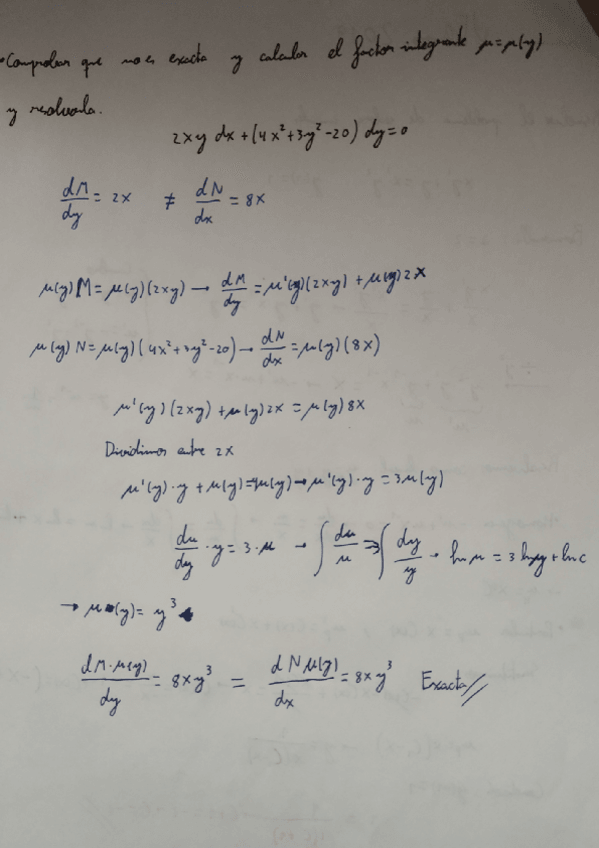 • Comprobar que no es exacta y calcular el factor integrante μ=μ(y)
y resolverla.
2xy dx + (4x²+3y²-20) dy=0
dM/dy = 2x ≠ dN/dx = 8x
μ(y) M = μ(y)(2xy) → dM/dy = μ'(y)(2xy) + μ(y)2x
μ(y) N = μ(y)(4x²+3y²-20) → dN/dx = μ(y)(8x)
μ'(y)(2xy) + μ(y)2x = μ(y)8x
Dividimos entre 2x
μ'(y)·y + μ(y)=4μ(y) → μ'(y)·y = 3μ(y)
du/dy · y = 3·μ → ∫ du/μ = 3∫ dy/y → ln μ = 3 ln y + ln c
→ μ(y) = y³
dM·μ(y)/dy = 8xy³ = dN μ(y)/dx = 8xy³ Exacta//